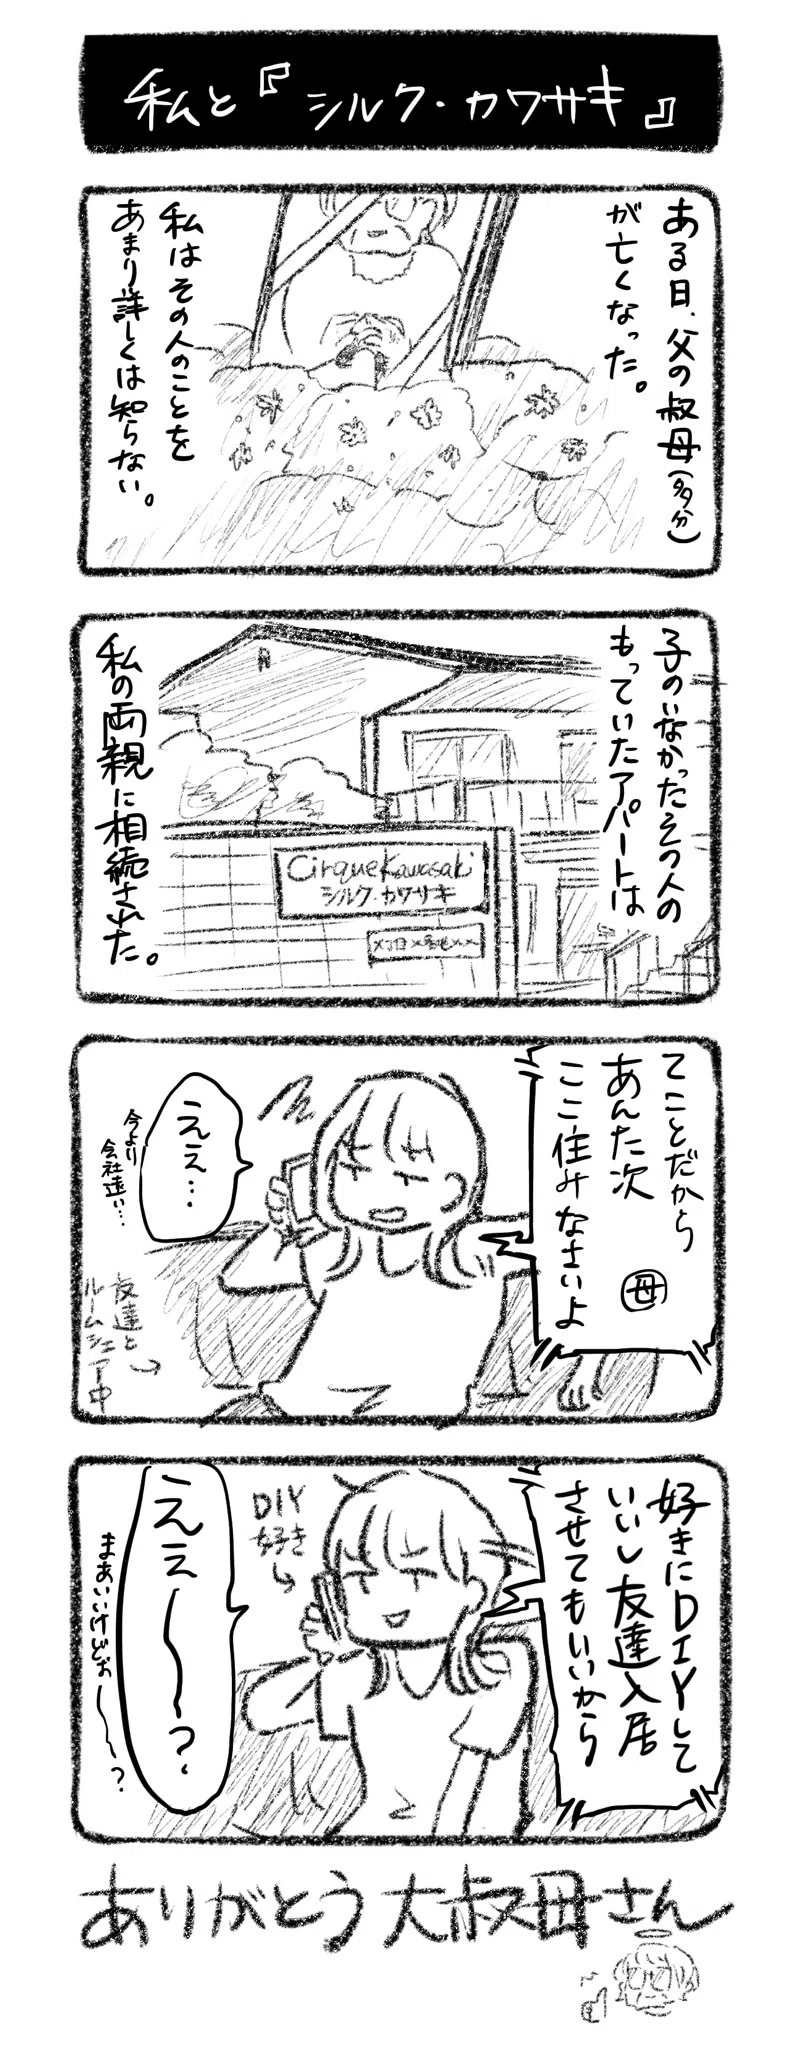 私と『シルク・カワサキ』
ある日、父の叔母(多分)
が亡くなった。
私はその人のことを
あまり詳しくは知らない。
子のいなかったその人の
もっていたアパートは
私の両親に相続された。
Cirque Kawasaki
シルク・カワサキ
てことだから
あんた次
ここ住みなさいよ
母
ええ…
今より
会社遠い…
友達と
ルームシェア中
好きにDIYして
いいし友達入居
させてもいいから
DIY
好き
ええ〜〜?
まあいいけどぉ〜〜?
ありがとう大叔母さん